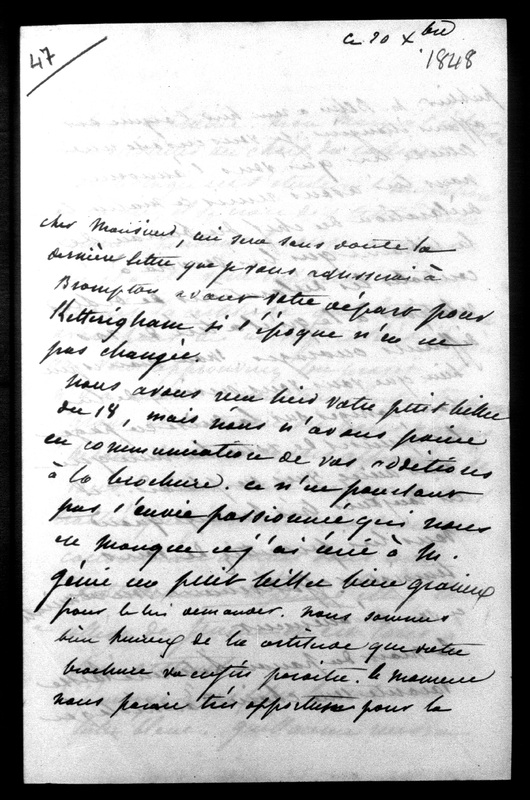 47
ce 20 Xbre
1848
cher Monsieur, ceci sera sans doute la
dernière lettre que je vous adresserai à
Brompton avant votre départ pour
Ketteringham si l'époque n'en est
pas changée.
nous avons reçu hier votre petit billet
du 18, mais nous n'avons point
eu communication de vos additions
à la brochure. ce n'est pourtant
pas l'envie passionnée qui nous
en manque et j'ai écrit à M.
génie un petit billet bien gracieux
pour le lui demander. nous sommes
bien heureux de la certitude que votre
brochure va enfin paraître. le moment
nous paraît très opportun pour la